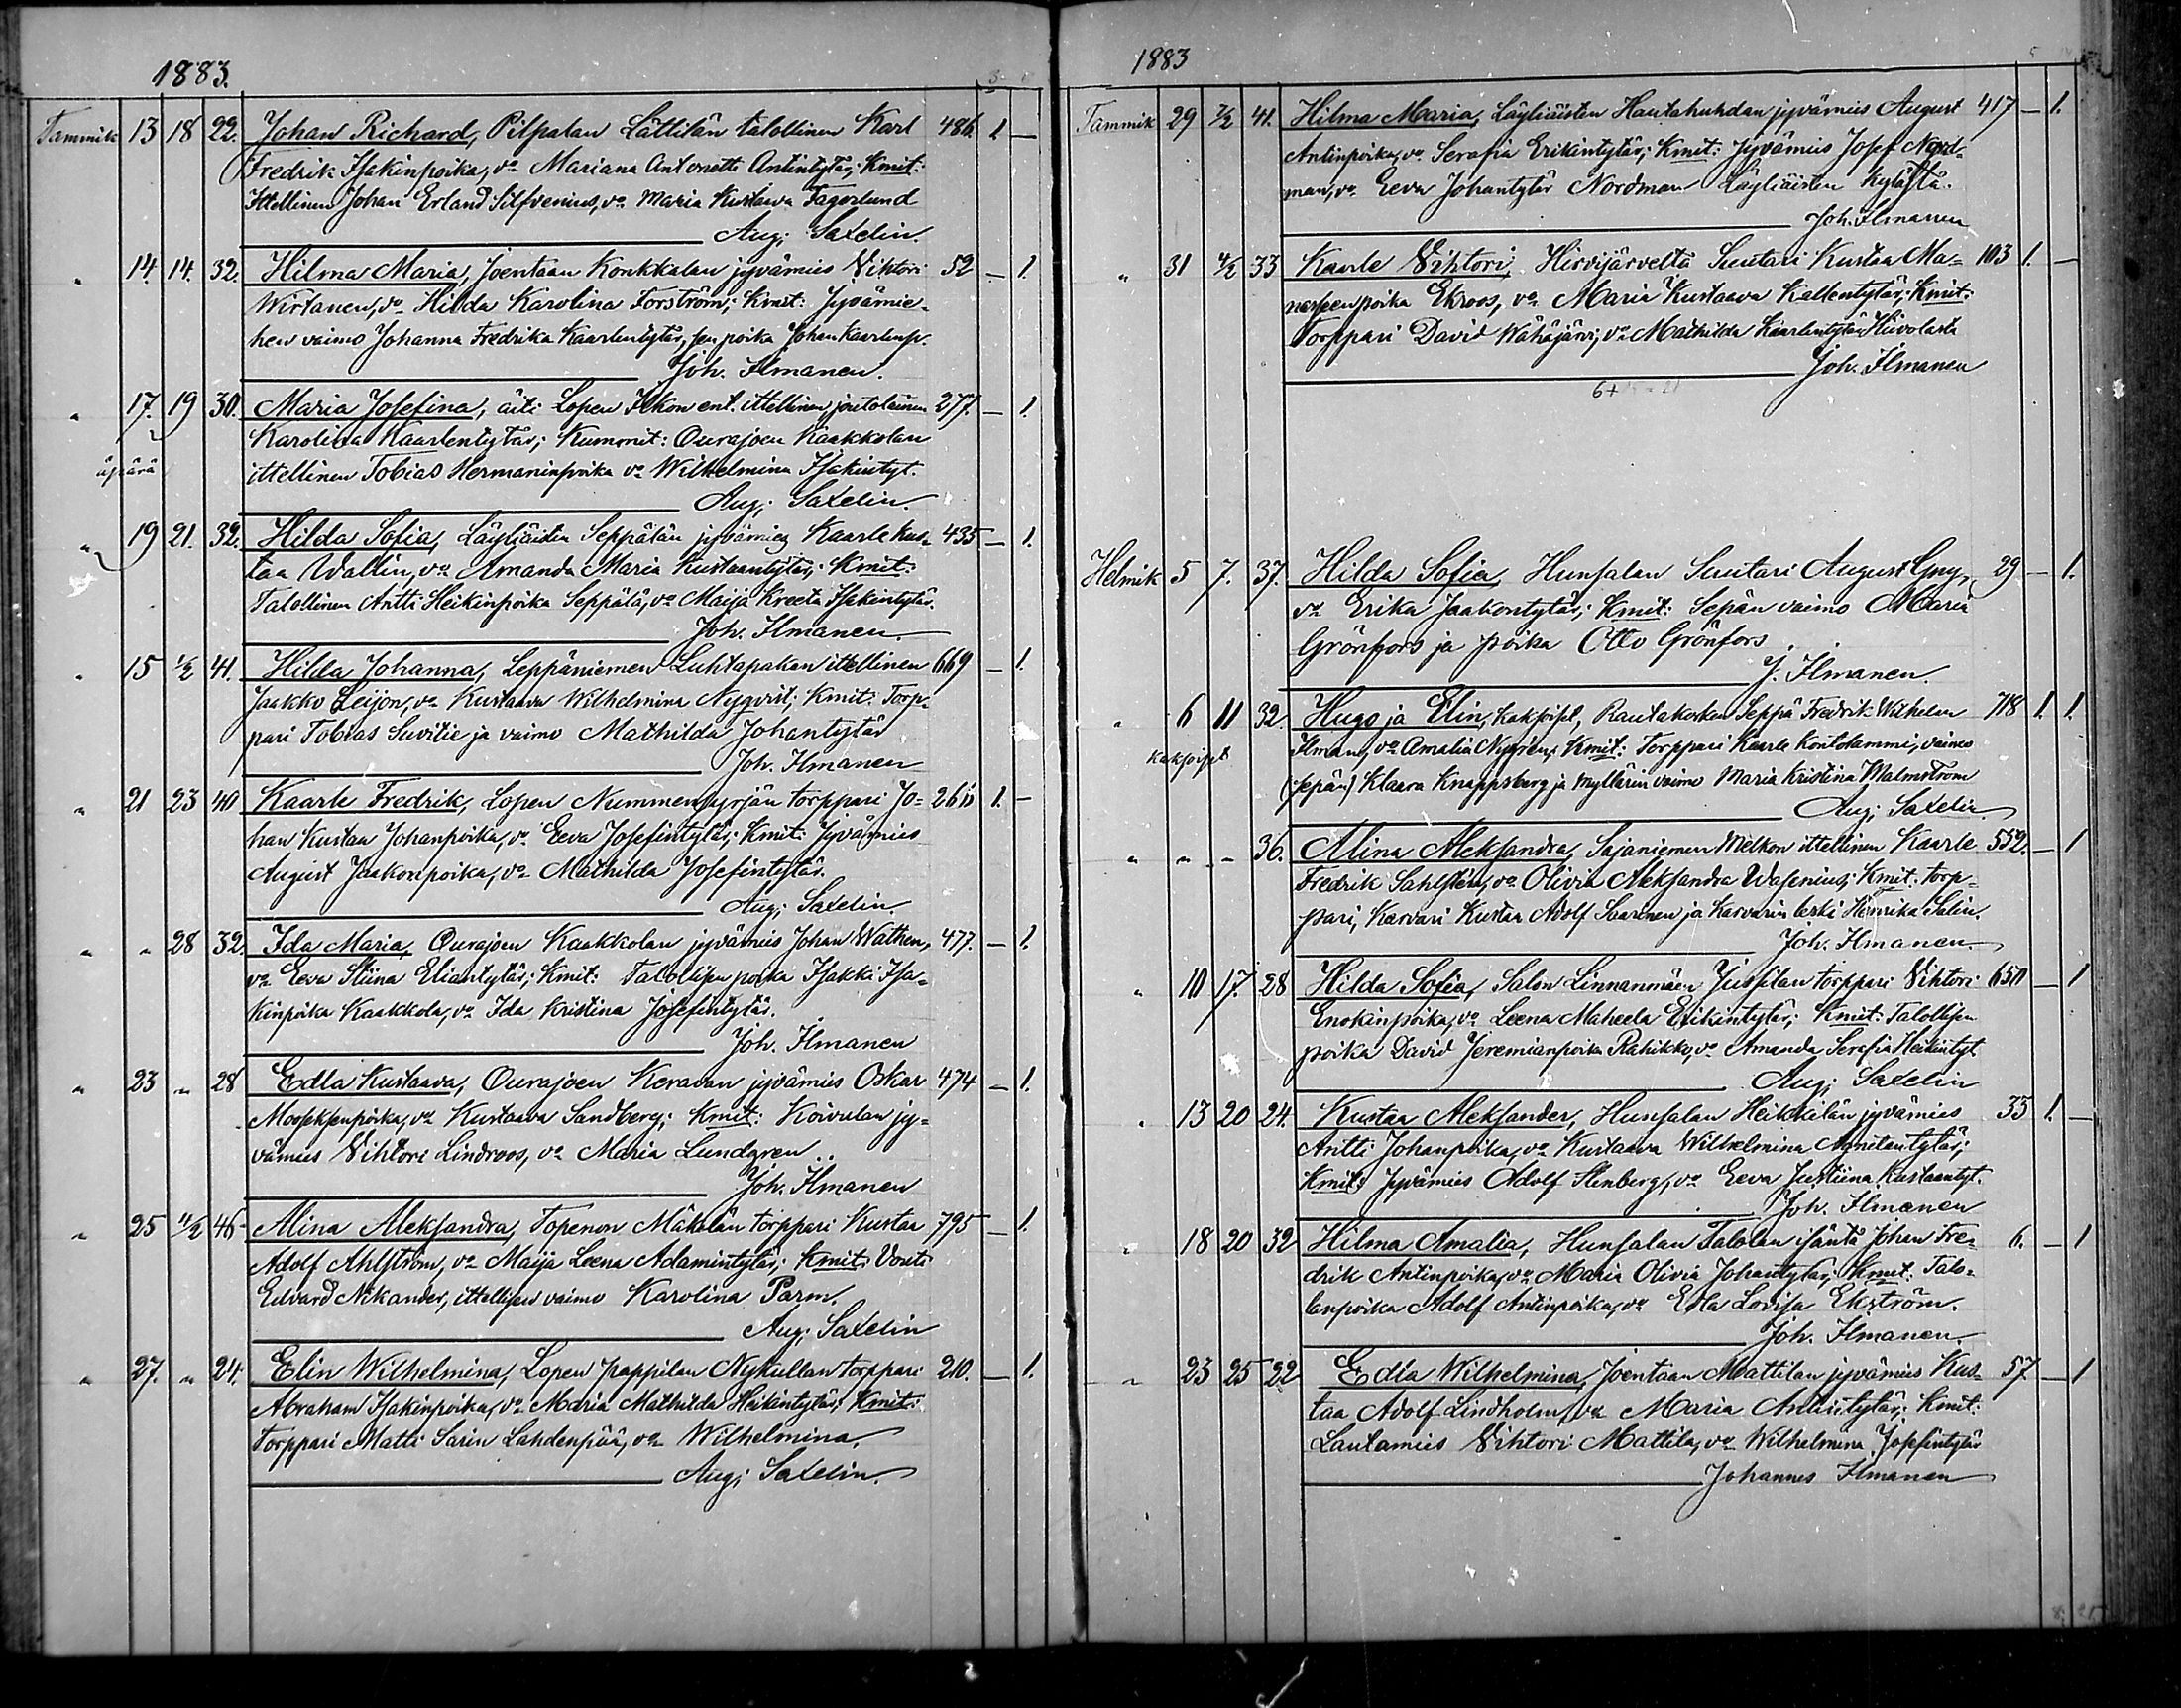 1883.
Tammik 13 18 22. Johan Richard, Pilpalan Lättilän talollinen Karl 486. 1 —
Fredrik Isakinpoika, vo Mariana Antonetta Antintytär; Kmit:
Ittellinen Johan Erland Silfvenius, vo Maria Kustaava Fagerlund
Aug: Saxelin.
" 14. 14. 32. Hilma Maria, Joentaan Konkkalan jyvämies Vihtori 52 — 1.
Wirtanen, vo Hilda Karolina Forström; Kmit: Jyvämie-
hen vaimo Johanna Fredrika Kaarlentytär, sen poika Johan Kaarlenp.
Joh. Ilmanen.
" 17. 19 30. Maria Josefina, äiti Lopen ent. ittellinen 277. — 1.
Karolina Kaarlentytär; Kummit: Ourajoen Kaakkolan
äpärä ittellinen Tobias Hermaninpoika vo Wilhelmina Isakintyt.
Aug: Saxelin.
" 19 21. 32. Hilda Sofia, Läyliäisten Seppälän jyvämies Kaarle Kus- 435 — 1.
taa Wallin, vo Amanda Maria Kustaantytär; Kmit:
Talollinen Antti Heikinpoika Seppälä, vo Maija Kreeta Isakintytär.
Joh. Ilmanen.
" 15 1/2 41. Hilda Johanna, Leppäniemen Luhtapakan ittellinen 669 — 1.
Jaakko Leijon, vo Kustaava Wilhelmina Nyqvist; Kmit: Torp-
pari Tobias Suvitie ja vaimo Mathilda Johantytär
Joh. Ilmanen
" 21 23 40 Kaarle Fredrik, Lopen Nummensyrjän torppari Jo- 1. —
han Kustaa Johanpoika, vo Eeva Josefintytär; Kmit: Jyvämies
August Jaakonpoika, vo Mathilda Josefintytär.
Aug: Saxelin.
" " 28 32. Ida Maria, Ourajoen Kaakkolan jyvämies Johan Wathen, 477. — 1.
vo Eeva Stiina Eliantytär; Kmit: Talollisen poika Isakki Isa-
kinpoika Kaakkola, vo Ida Kristina Josefintytär.
Joh. Ilmanen
" 23 " 28 Edla Kustaava, Ourajoen Keravan jyvämies Oskar 474 — 1.
Mooseksenpoika, vo Kustaava Sandberg; Kmit: Koivulan jy-
vämies Vihtori Lindroos, vo Maria Lundgren.
Joh. Ilmanen
" 25 11/2 46 Alina Aleksandra, Topenon Mäkelän torppari Kustaa 795 — 1.
Adolf Ahlström, vo Maija Leena Adamintytär; Kmit: Vouti
Edvard Nikander, ittellisen vaimo Karolina Parm.
Aug: Saxelin
" 27. " 24. Elin Wilhelmina, Lopen pappilan Nykullan torppari 210. — 1.
Abraham Isakinpoika, vo Maria Mathilda Heikintytär; Kmit:
Torppari Matti Sarin Lahdenpää, vo Wilhelmina.
Aug: Saxelin.
1883
Tammik 29 7/2 41. Hilma Maria, Läyliäisten Hautahuhdan jyvämies August 417 — 1.
Antinpoika, vo Serafia Erikintytär; Kmit: Jyvämies Josef Nord-
man, vo Eeva Johantytär Nordman Läyliäisten kylästä.
Joh. Ilmanen
" 31 4/2 33 Kaarle Vihtori, Hirvijärveltä Suutari Kustaa Ma- 103 1. —
nasseenpoika Ekroos, vo Maria Kustaava Kallentytär; Kmit:
Torppari David Wähäjärvi, vo Mathilda Kaarlentytär
Joh. Ilmanen
6+
Helmik 5 7. 37. Hilda Sofia, Hunsalan Suutari August 29 — 1.
vo Erika Jaakontytär; Kmit: Sepän vaimo Maria
Grönfors ja poika Otto Grönfors.
J. Ilmanen.
" 6 11 32. Hugo ja Elin, kaksoiset, Rautakosken Seppä Fredrik Wilhelm 718 1. 1.
kaksoiset Ilman, vo Amalia Nygren; Kmit: Torppari Kaarle Kontolammi, vaimo
(sepän) Klaara Knappsberg ja myllärin vaimo Maria Kristina Malmström
Aug: Saxelin
" " — 36. Alina Aleksandra, Sajaniemen Melkon ittellinen Kaarle 552. — 1
Fredrik Sahlsten, vo Olivia Aleksandra Wasenius; Kmit: torp-
pari, Karvari Kustaa Adolf Saarinen ja Karvarin leski Henrika Salin.
Joh. Ilmanen.
" 10 17. 28 Hilda Sofia, Salon Linnanmäen Jussilan torppari Vihtori 650 — 1
Enokinpoika, vo Leena Maheela Erikintytär; Kmit: Talollisen
poika David Jeremianpoika Rahikko, vo Amanda Serafia Heikintyt
Aug: Saxelin
" 13 20 24. Kustaa Aleksander, Hunsalan Heikkilän jyvämies 33 1. —
Antti Johanpoika, vo Kustaava Wilhelmina Agnetantytär;
Kmit: Jyvämies Adolf Stenberg, vo Eeva Justiina Kustaantyt.
Joh. Ilmanen
" 18 20 32 Hilma Amalia, Hunsalan Talolan isäntä Johan Fre- 6. — 1
drik Antinpoika, vo Maria Olivia Johantytär; Kmit: Talo-
lanpoika Adolf Antinpoika, vo Edla Lovisa Ekström.
Joh. Ilmanen.
" 23 25 22 Edla Wilhelmina, Joentaan Mattilan jyvämies Kus- 57 — 1
taa Adolf Lindholm, vo Maria Antintytär; Kmit:
Lautamies Vihtori Mattila, vo Wilhelmina Josefintytär
Johannes Ilmanen